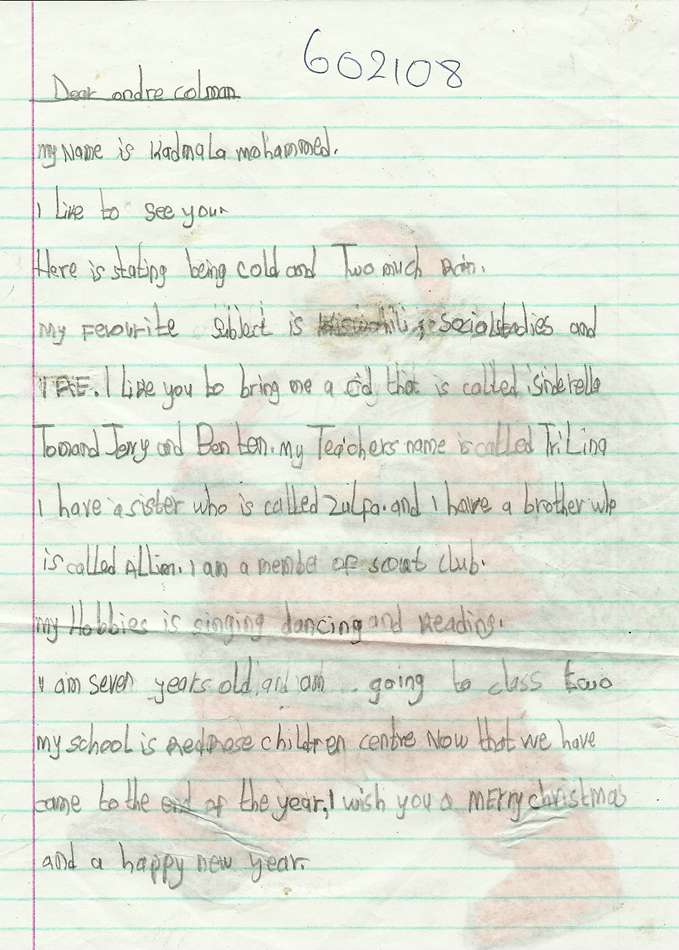 602108
Dear andre colman
my Name is Kadmala mohammed.
I Like to see you
Here is stating being cold and Two much Rain.
my Fevourite subject is socialstudies and
I Like you to bring me a cid that is called isinderella
Tomand Jerry and Ben ten. my Teachers name is called TriLina
I have a sister who is called Zulfa. and I have a brother who
is called ALLim. I am a member of scout club.
my Hobbies is singing dancing and Reading.
I am seven years old and am going to class two
my school is Redrose children centre Now that we have
came to the end of the year, I wish you a MErry christmas
and a happy new year.